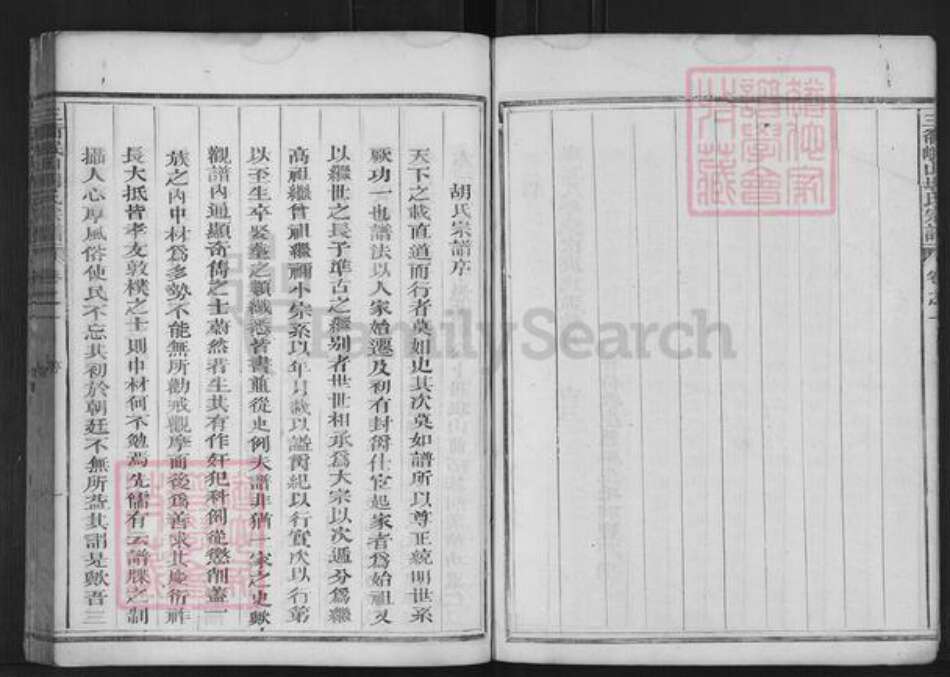 三衢峴山胡氏宗譜
卷之一
胡氏宗譜序
天下之載直道而行者莫如史其次莫如譜所以尊正統明世系
厥功一也譜法以人家始遷及初有封爵仕宦起家者為始祖又
以繼世之長子準古之繼别者世世相承為大宗以次遞分為繼
高祖繼曾祖繼禰小宗系以年月載以諡爵紀以行實次以行第
以至生卒娶塟之類纖悉皆書蓋從史例夫譜非猶一家之史歟
觀譜內通顯奇儁之士蔚然者生其有作奸犯科例從懲削蓋一
族之內中材為多勢不能無所勸戒觀摩而後為善求其慶衍祚
長大抵皆孝友敦樸之士則中材何不勉焉先儒有云譜牒之制
攝人心厚風俗使民不忘其初於朝廷不無所益其謂是歟吾三
FamilySearch